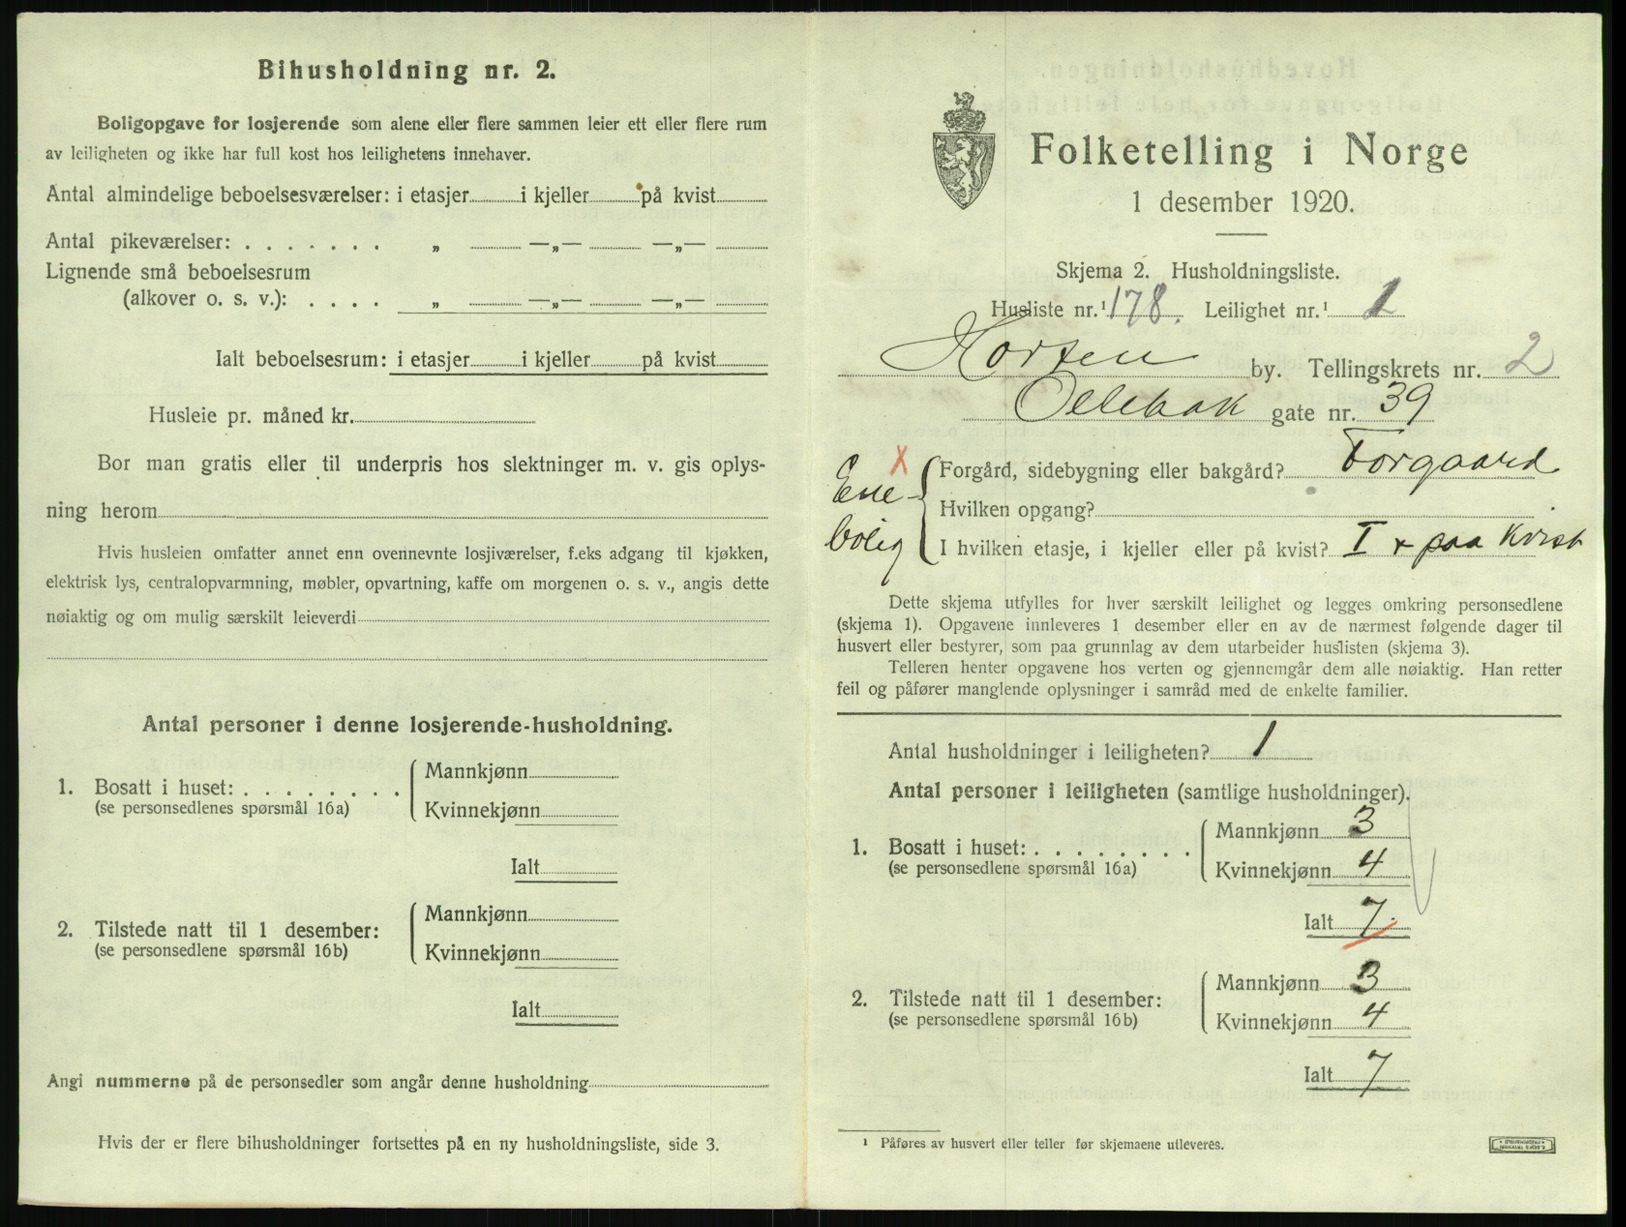 Bihusholdning nr. 2.
Boligopgave for losjerende som alene eller flere sammen leier ett eller flere rum
av leiligheten og ikke har full kost hos leilighetens innehaver.
Antal almindelige beboelsesværelser: i etasjer i kjeller på kvist
Antal pikeværelser: . . . . . . . „ —„— —„—
Lignende små beboelsesrum
(alkover o. s. v.): . . . . „ —„— —„—
Ialt beboelsesrum: i etasjer i kjeller på kvist
Husleie pr. måned kr.
Bor man gratis eller til underpris hos slektninger m. v. gis oplys-
ning herom
Hvis husleien omfatter annet enn ovennevnte losjiværelser, f.eks adgang til kjøkken,
elektrisk lys, centralopvarmning, møbler, opvartning, kaffe om morgenen o. s. v., angis dette
nøiaktig og om mulig særskilt leieverdi
Antal personer i denne losjerende-husholdning.
1. Bosatt i huset: . . . . . . . .
(se personsedlenes spørsmål 16a)
Mannkjønn
Kvinnekjønn
Ialt
2. Tilstede natt til 1 desember:
(se personsedlene spørsmål 16b)
Mannkjønn
Kvinnekjønn
Ialt
Angi nummerne på de personsedler som angår denne husholdning
Hvis der er flere bihusholdninger fortsettes på en ny husholdningsliste, side 3.
Folketelling i Norge
1 desember 1920.
Skjema 2. Husholdningsliste.
Husliste nr.¹ 178. Leilighet nr.¹ 1
Horten by. Tellingskrets nr. 2
Ollebak gate nr. 39
X
Ene-
bolig
Forgård, sidebygning eller bakgård? Forgaard
Hvilken opgang?
I hvilken etasje, i kjeller eller på kvist? I + paa Kvist
Dette skjema utfylles for hver særskilt leilighet og legges omkring personsedlene
(skjema 1). Opgavene innleveres 1 desember eller en av de nærmest følgende dager til
husvert eller bestyrer, som paa grunnlag av dem utarbeider huslisten (skjema 3).
Telleren henter opgavene hos verten og gjennemgår dem alle nøiaktig. Han retter
feil og påfører manglende oplysninger i samråd med de enkelte familier.
Antal husholdninger i leiligheten? 1
Antal personer i leiligheten (samtlige husholdninger).
1. Bosatt i huset: . . . . . . . .
(se personsedlene spørsmål 16a)
Mannkjønn 3
Kvinnekjønn 4
Ialt 7
2. Tilstede natt til 1 desember:
(se personsedlene spørsmål 16b)
Mannkjønn 3
Kvinnekjønn 4
Ialt 7
¹ Påføres av husvert eller teller før skjemaene utleveres.